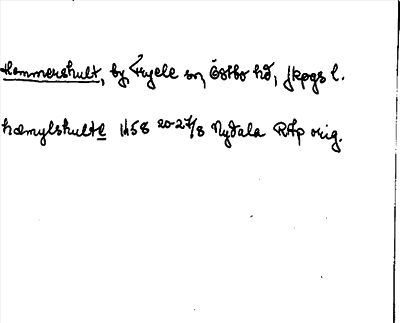 Hammershult, by, Fryele sn, Östbo hd, Jkpgs l.
hæmylshulte 1458 20-27/8 Nydala RAp orig.